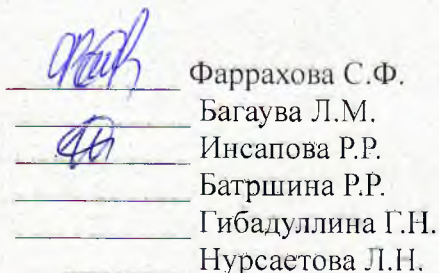 Фаррахова С.Ф.
Багаува Л.М.
Инсапова Р.Р.
Батршина Р.Р.
Гибадуллина Г.Н.
Нурсаетова Л.Н.